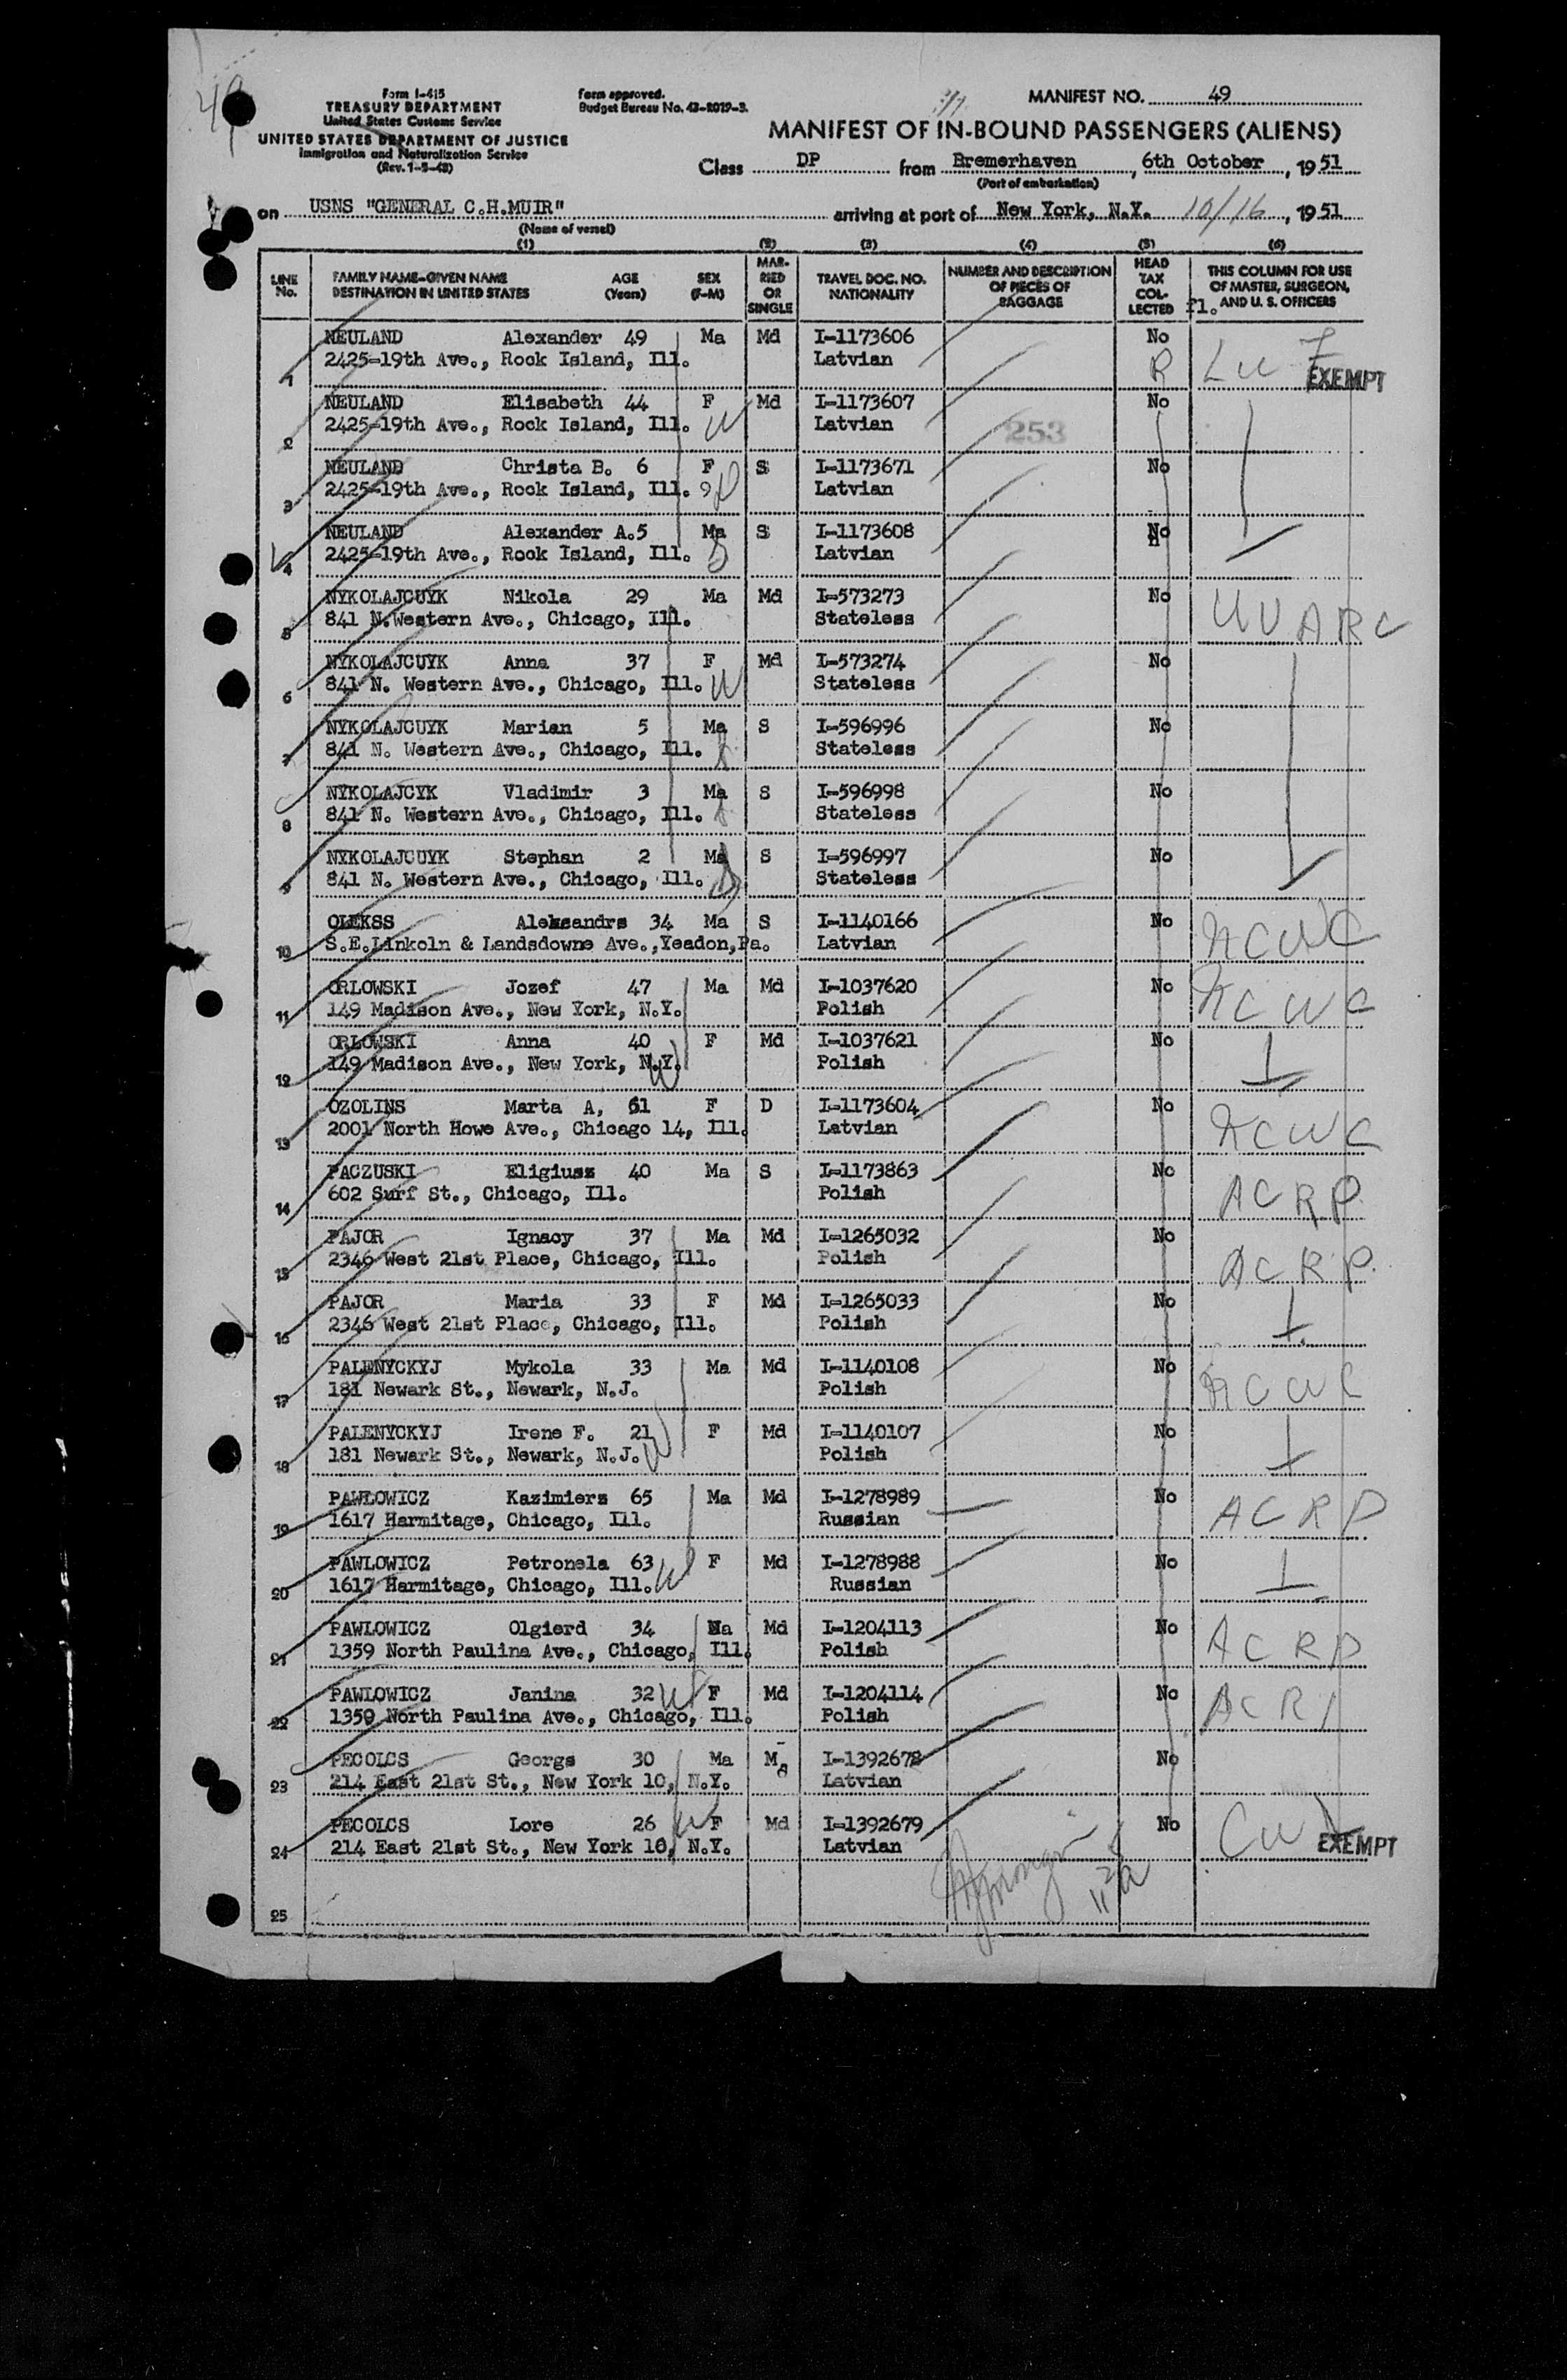 49
Form I-415
TREASURY DEPARTMENT
United States Customs Service
UNITED STATES DEPARTMENT OF JUSTICE
Immigration and Naturalization Service
(Rev. 1-5-48)
Form approved.
Budget Bureau No. 43-R019-3.
MANIFEST NO. 49
MANIFEST OF IN-BOUND PASSENGERS (ALIENS)
Class DP from Bremerhaven, 6th October, 1951
(Port of embarkation)
on USNS "GENERAL C.H.MUIR" arriving at port of New York, N.Y. 10/16, 1951
(Name of vessel)
(1) (2) (3) (4) (5) (6)
LINE No. FAMILY NAME-GIVEN NAME DESTINATION IN UNITED STATES AGE (Years) SEX (F-M) MARRIED OR SINGLE TRAVEL DOC. NO. NATIONALITY NUMBER AND DESCRIPTION OF PIECES OF BAGGAGE HEAD TAX COLLECTED fl. THIS COLUMN FOR USE OF MASTER, SURGEON, AND U. S. OFFICERS
NEULAND Alexander 49 Ma Md I-1173606 No
1 2425-19th Ave., Rock Island, Ill. Latvian R EXEMPT
NEULAND Elisabeth 44 F Md I-1173607 No
2 2425-19th Ave., Rock Island, Ill. W Latvian 253
NEULAND Christa B. 6 F S I-1173671 No
3 2425-19th Ave., Rock Island, Ill. Latvian
NEULAND Alexander A.5 Ma S I-1173608 No
4 2425-19th Ave., Rock Island, Ill. Latvian
NYKOLAJCUYK Nikola 29 Ma Md I-573273 No
5 841 N.Western Ave., Chicago, Ill. Stateless UUARC
NYKOLAJCUYK Anna 37 F Md I-573274 No
6 841 N. Western Ave., Chicago, Ill. W Stateless
NYKOLAJCUYK Marian 5 Ma S I-596996 No
7 841 N. Western Ave., Chicago, Ill. Stateless
NYKOLAJCYK Vladimir 3 Ma S I-596998 No
8 841 N. Western Ave., Chicago, Ill. Stateless
NYKOLAJCUYK Stephan 2 Ma S I-596997 No
9 841 N. Western Ave., Chicago, Ill. Stateless
OLEKSS Aleksandrs 34 Ma S I-1140166 No NCWC
10 S.E.Linkoln & Landsdowne Ave.,Yeadon,Pa. Latvian
ORLOWSKI Jozef 47 Ma Md I-1037620 No NCWC
11 149 Madison Ave., New York, N.Y. Polish
ORLOWSKI Anna 40 F Md I-1037621 No
12 149 Madison Ave., New York, N.Y. W Polish
OZOLINS Marta A, 61 F D I-1173604 No
13 2001 North Howe Ave., Chicago 14, Ill. Latvian NCWC
PACZUSKI Eligiusz 40 Ma S I-1173863 No
14 602 Surf St., Chicago, Ill. Polish ACRP
PAJOR Ignacy 37 Ma Md I-1265032 No
15 2346 West 21st Place, Chicago, Ill. Polish ACRP
PAJOR Maria 33 F Md I-1265033 No
16 2346 West 21st Place, Chicago, Ill. Polish
PALENYCKYJ Mykola 33 Ma Md I-1140108 No
17 181 Newark St., Newark, N.J. Polish NCWC
PALENYCKYJ Irene F. 21 F Md I-1140107 No
18 181 Newark St., Newark, N.J. W Polish
PAWLOWICZ Kazimierz 65 Ma Md I-1278989 No
19 1617 Harmitage, Chicago, Ill. Russian ACRP
PAWLOWICZ Petronela 63 F Md I-1278988 No
20 1617 Harmitage, Chicago, Ill. W Russian
PAWLOWICZ Olgierd 34 Ma Md I-1204113 No
21 1359 North Paulina Ave., Chicago, Ill. Polish ACRP
PAWLOWICZ Janina 32 W F Md I-1204114 No ACRP
22 1359 North Paulina Ave., Chicago, Ill. Polish
PECOLCS Georgs 30 Ma M I-1392678 No
23 214 East 21st St., New York 10, N.Y. Latvian
PECOLCS Lore 26 W F Md I-1392679 No
24 214 East 21st St., New York 10, N.Y. Latvian EXEMPT
25